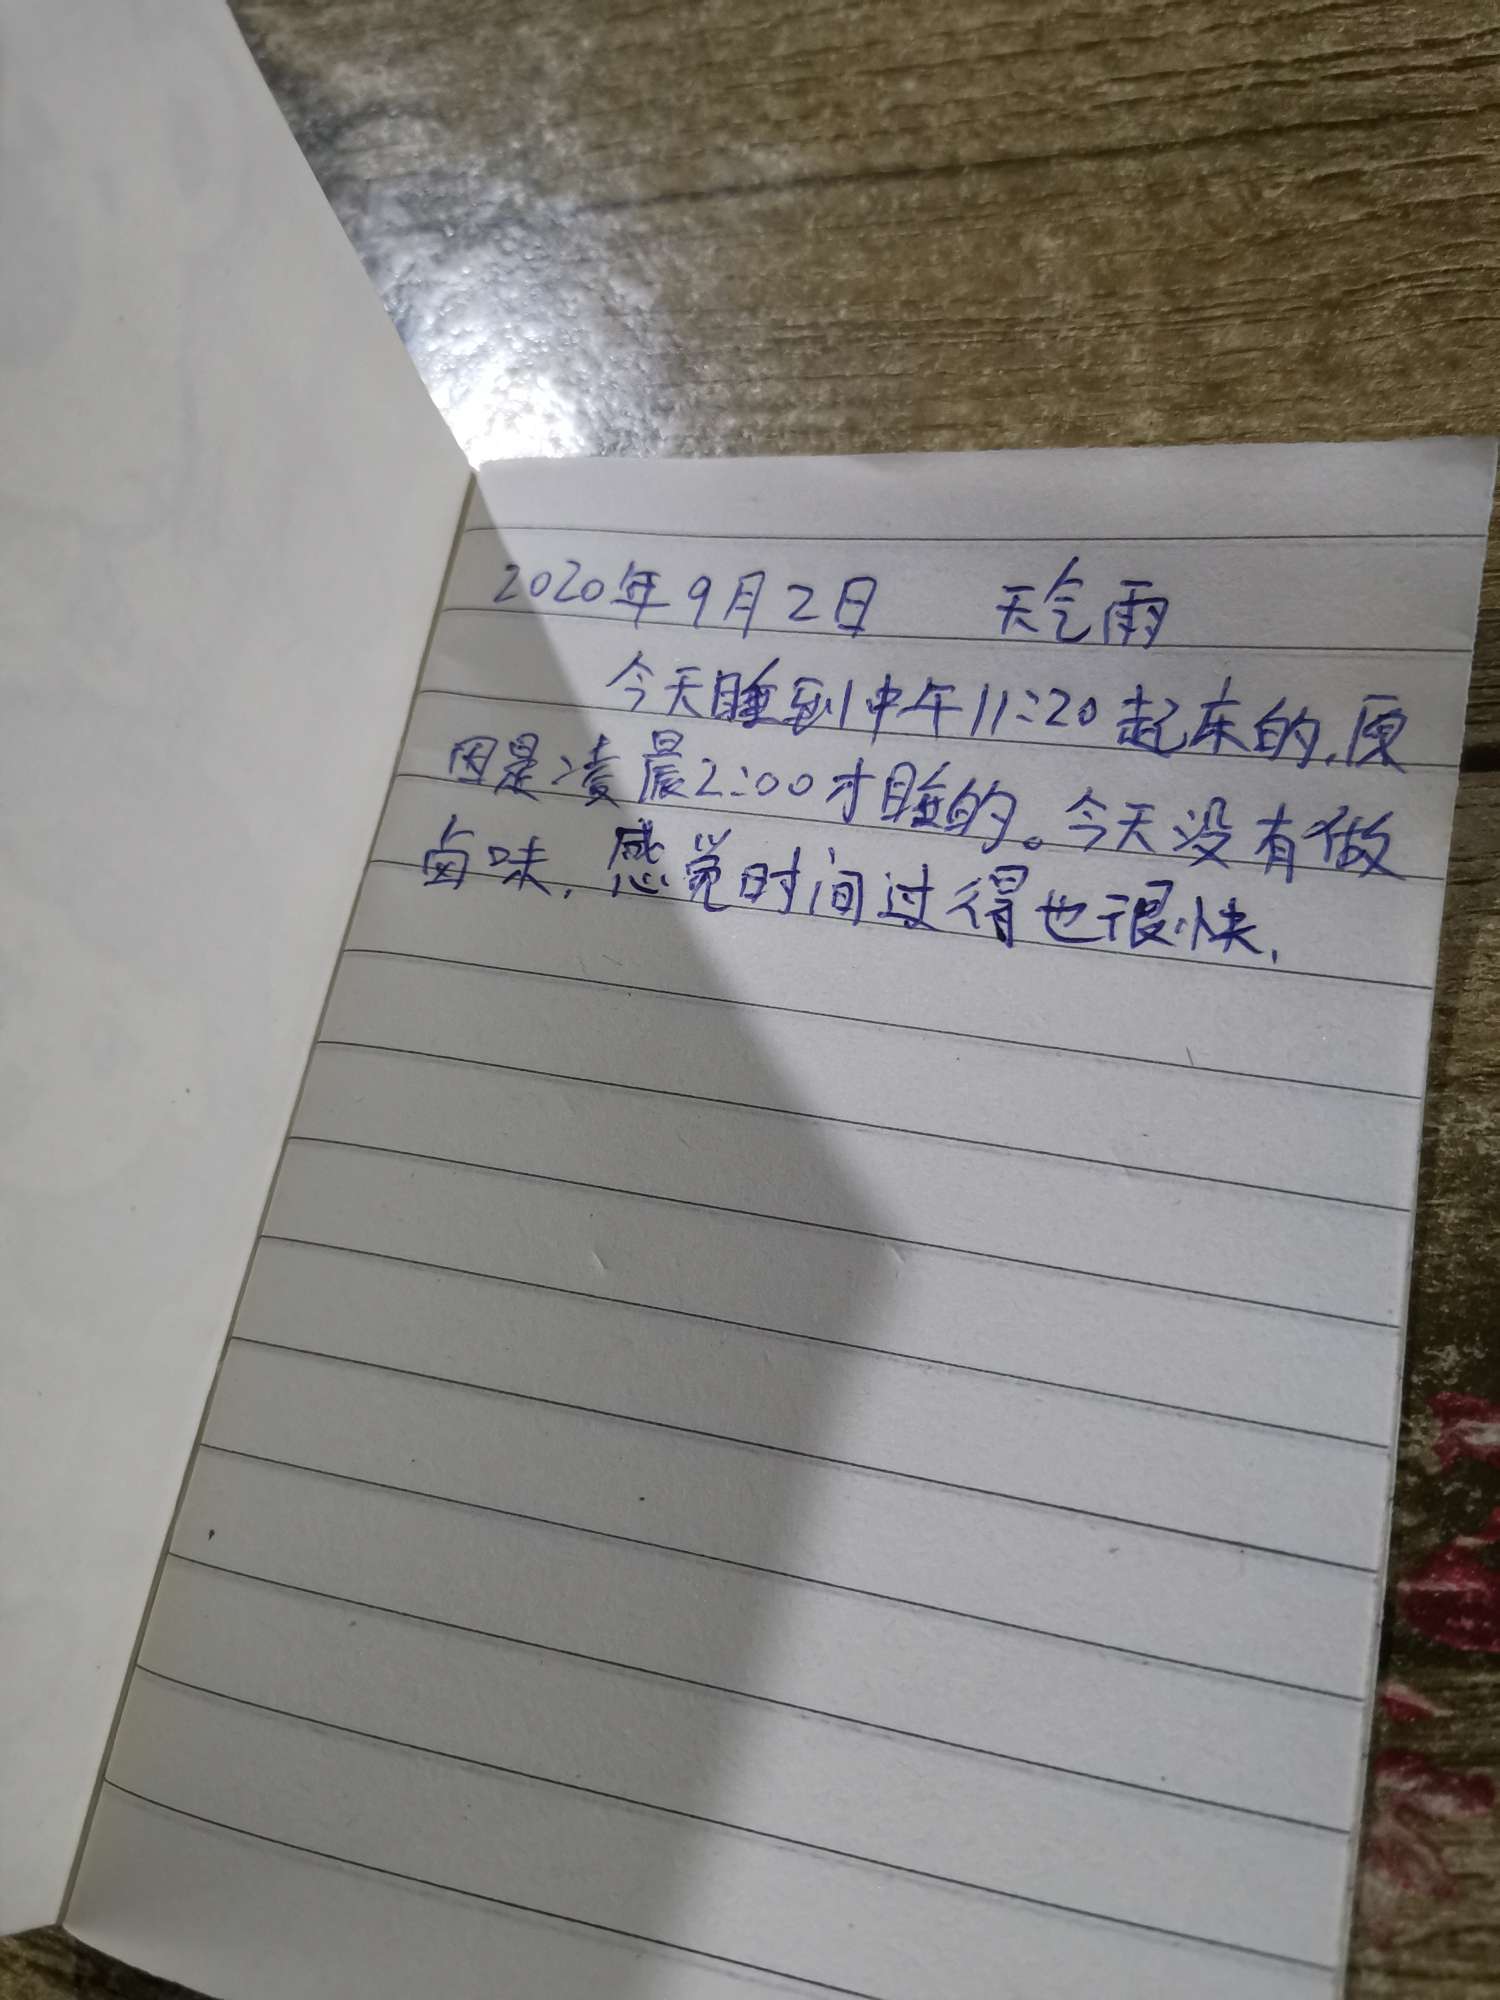 2020年9月2日 天气雨
今天睡到中午11:20起床的,原
因是凌晨2:00才睡的。今天没有做
卤味,感觉时间过得也很快,